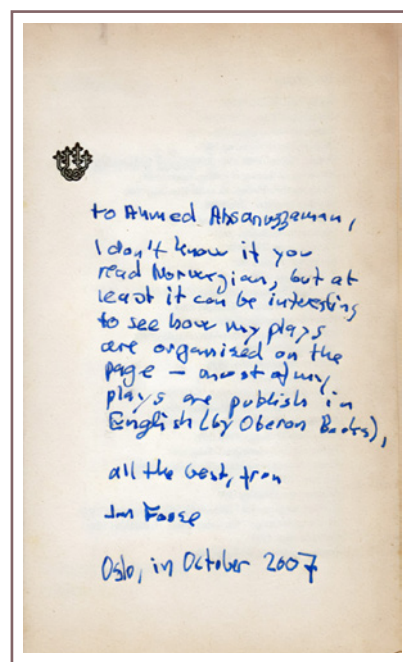 to Ahmed Ahsanuzzaman,
I don't know if you
read Norwegian, but at
least it can be interesting
to see how my plays
are organised on the
page – most of my
plays are publish in
English (by Oberon Books),
all the best, from
Jon Fosse
Oslo, in October 2007